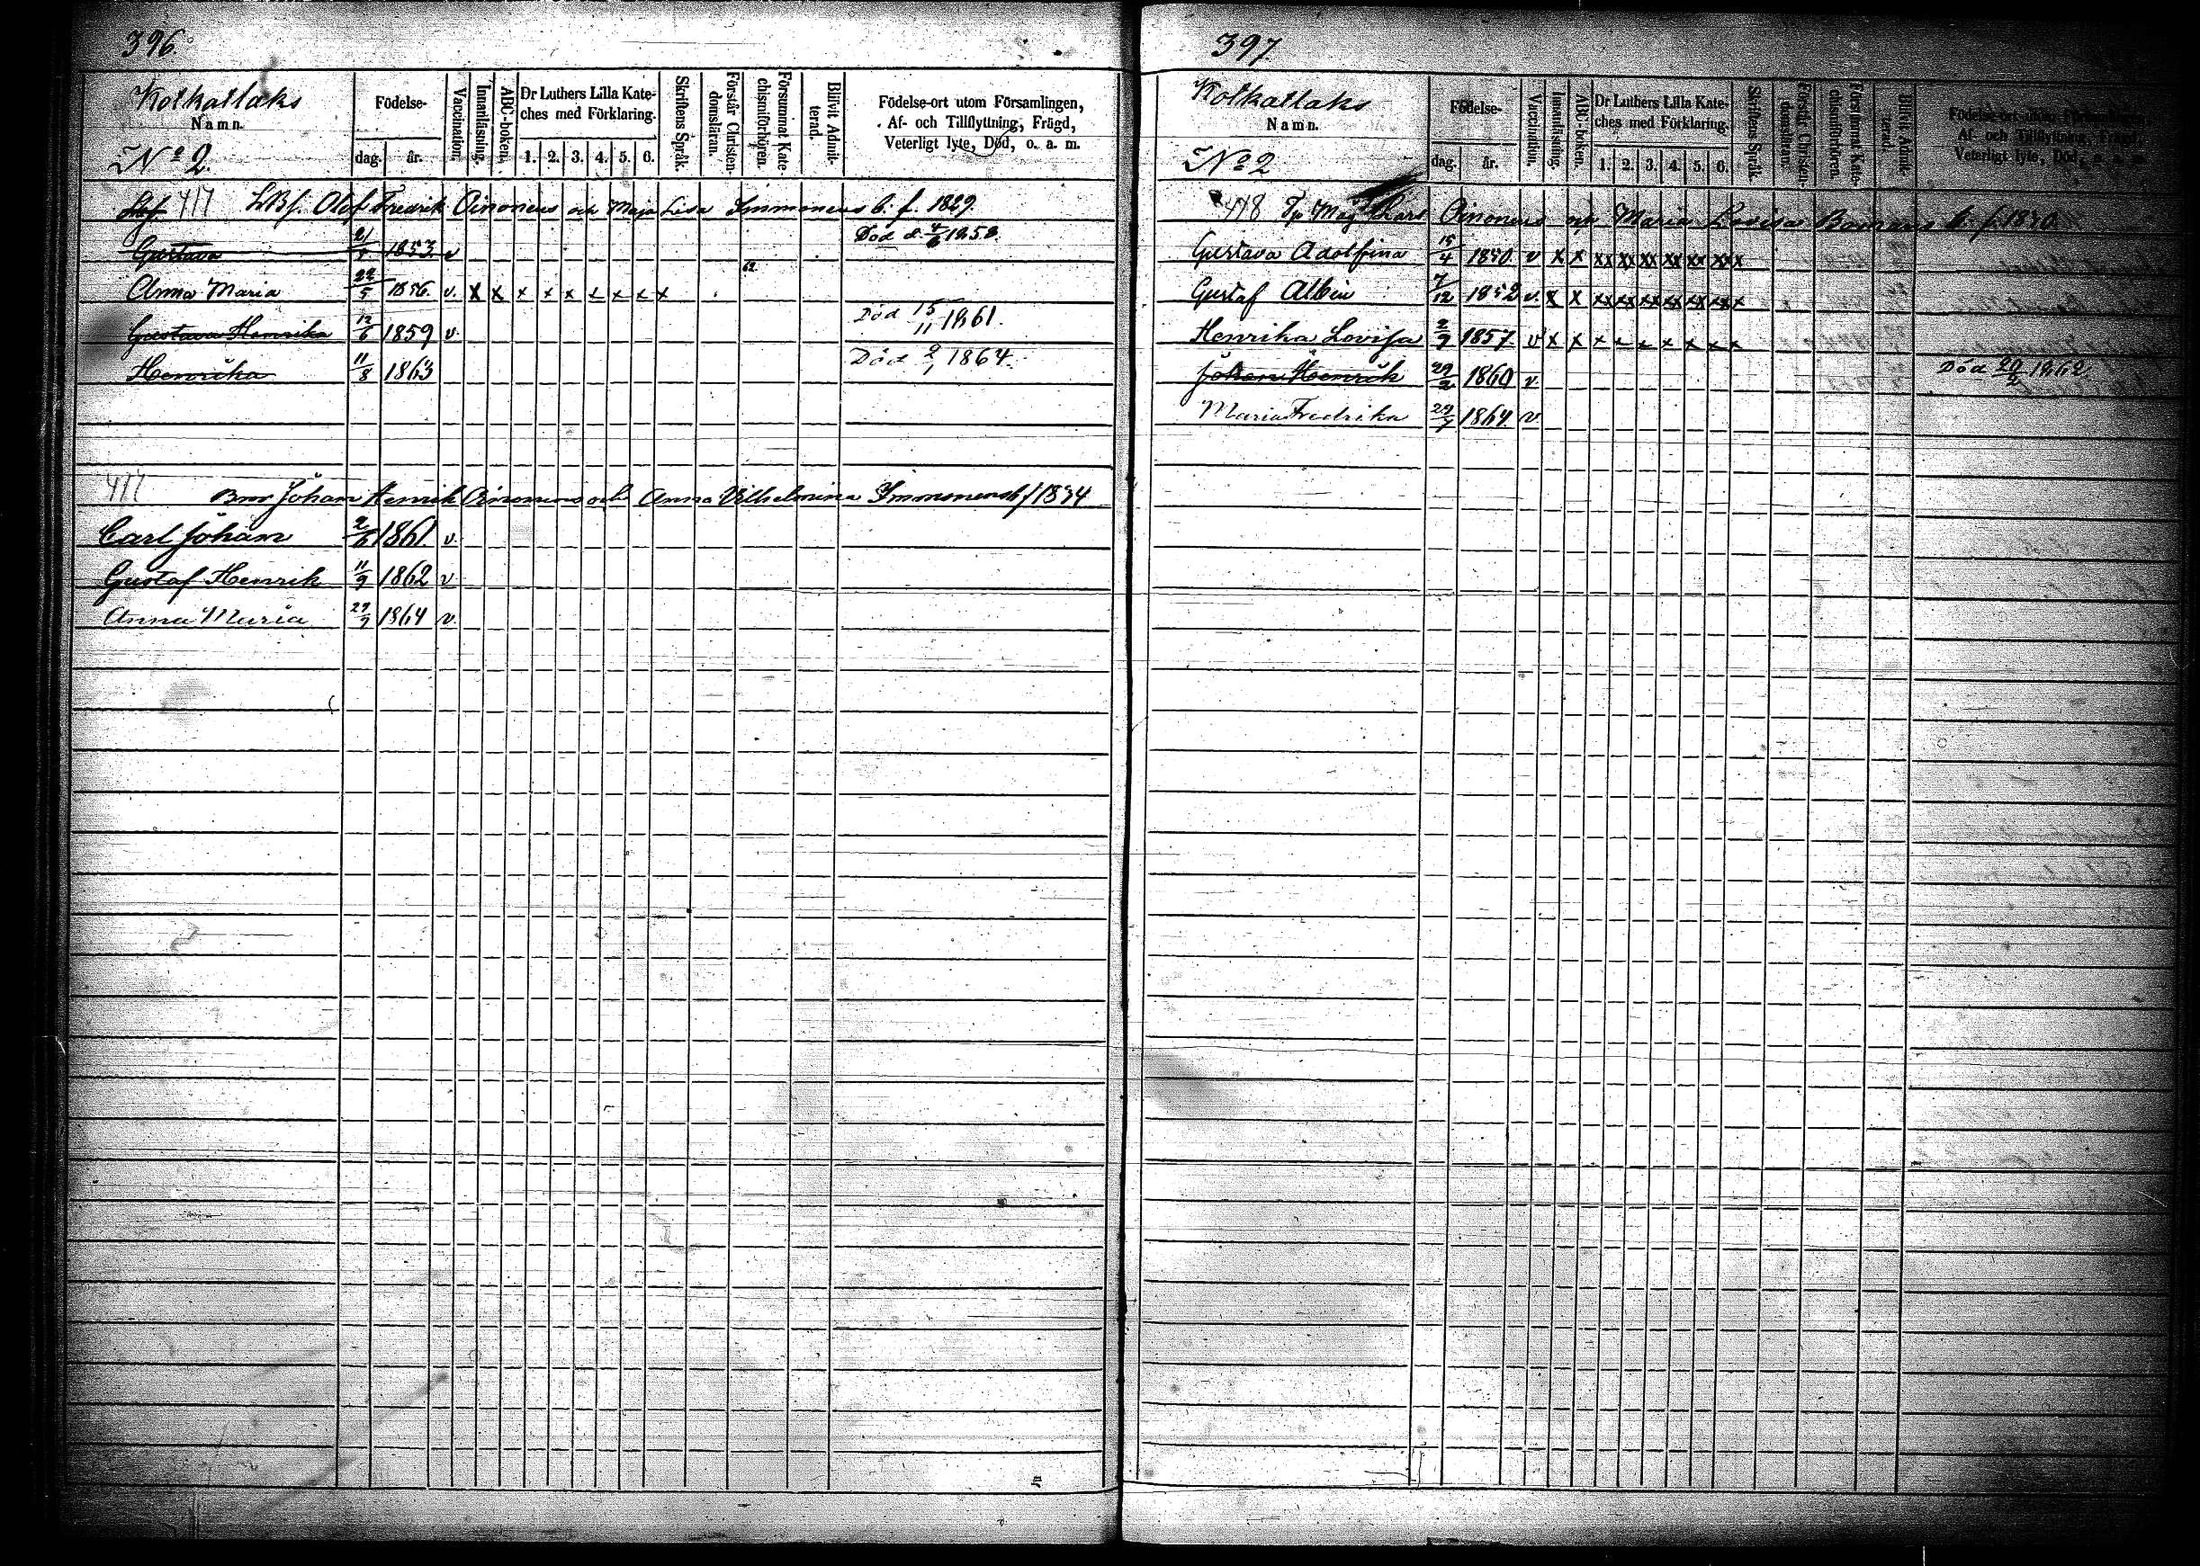 396
Kotkatlaks
Namn.
No 2.
Födelse-
dag. år.
Vaccination.
Innanläsning.
ABC-boken.
Dr Luthers Lilla Kate-
ches med Förklaring.
1. 2. 3. 4. 5. 6.
Skriftens Språk.
Förstår Christen-
domsläran.
Försummat Kate-
chismiförhören.
Blifvit Admit-
terad.
Födelse-ort utom Församlingen,
Af- och Tillflyttning, Frägd,
Veterligt lyte, Död, o. a. m.
417 Olof Fredrik Oinonens och Maja Lisa Immonens b. f. 1829.
Gustava 1853 v Död d. 4/6 1858.
Anna Maria 22/5 1856. v. x x x x x x x x x 62.
Gustava Henrika 12/6 1859 v. Död 15/11 1861.
Henrika 11/8 1863 Död 2/1 1864.
417 Johan Henrik Oinonens och Anna Vilhelmina Immonens b f 1834
Carl Johan 1861 v.
Gustaf Henrik 11/9 1862 v
Anna Maria 29/7 1864 v.
397
Kotkatlaks
Namn.
No 2
Födelse-
dag. år.
Vaccination.
Innanläsning.
ABC-boken.
Dr Luthers Lilla Kate-
ches med Förklaring.
1. 2. 3. 4. 5. 6.
Skriftens Språk.
Förstår Christen-
domsläran.
Försummat Kate-
chismiförhören.
Blifvit Admit-
terad.
Födelse-ort utom Församlingen,
Af- och Tillflyttning, Frägd,
Veterligt lyte, Död, o. a. m.
418 Oinonens och Maria Lovisa Bomans b. f.
Gustava Adolfina 15/4 1850 v x x xx xx xx xx xx xx x
Gustaf Albin 7/12 1852 v. x x xx xx xx xx xx xx x
Henrika Lovisa 2/7 1857 v x x x x x x x x x
Johan Henrik 29/2 1860 v. Död 1862
Maria Fredrika 29/7 1864 v.